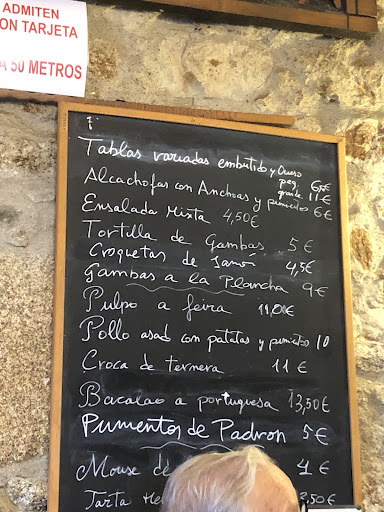 ADMITEN
ON TARJETA
A 50 METROS
Tablas variadas embutido y Queso
peq 6€
grande 11€
Alcachofas con Anchoas y pimientos 6€
Ensalada Mixta 4,50€
Tortilla de Gambas 5€
Croquetas de Jamón 4,5€
Gambas a la Plancha 9€
Pulpo a feira 11,00€
Pollo asado con patatas y pimientos 10
Croca de ternera 11€
Bacalao a portuguesa 13,50€
Pumentos de Padron 5€
Mouse de 4€
Tarta ,50€